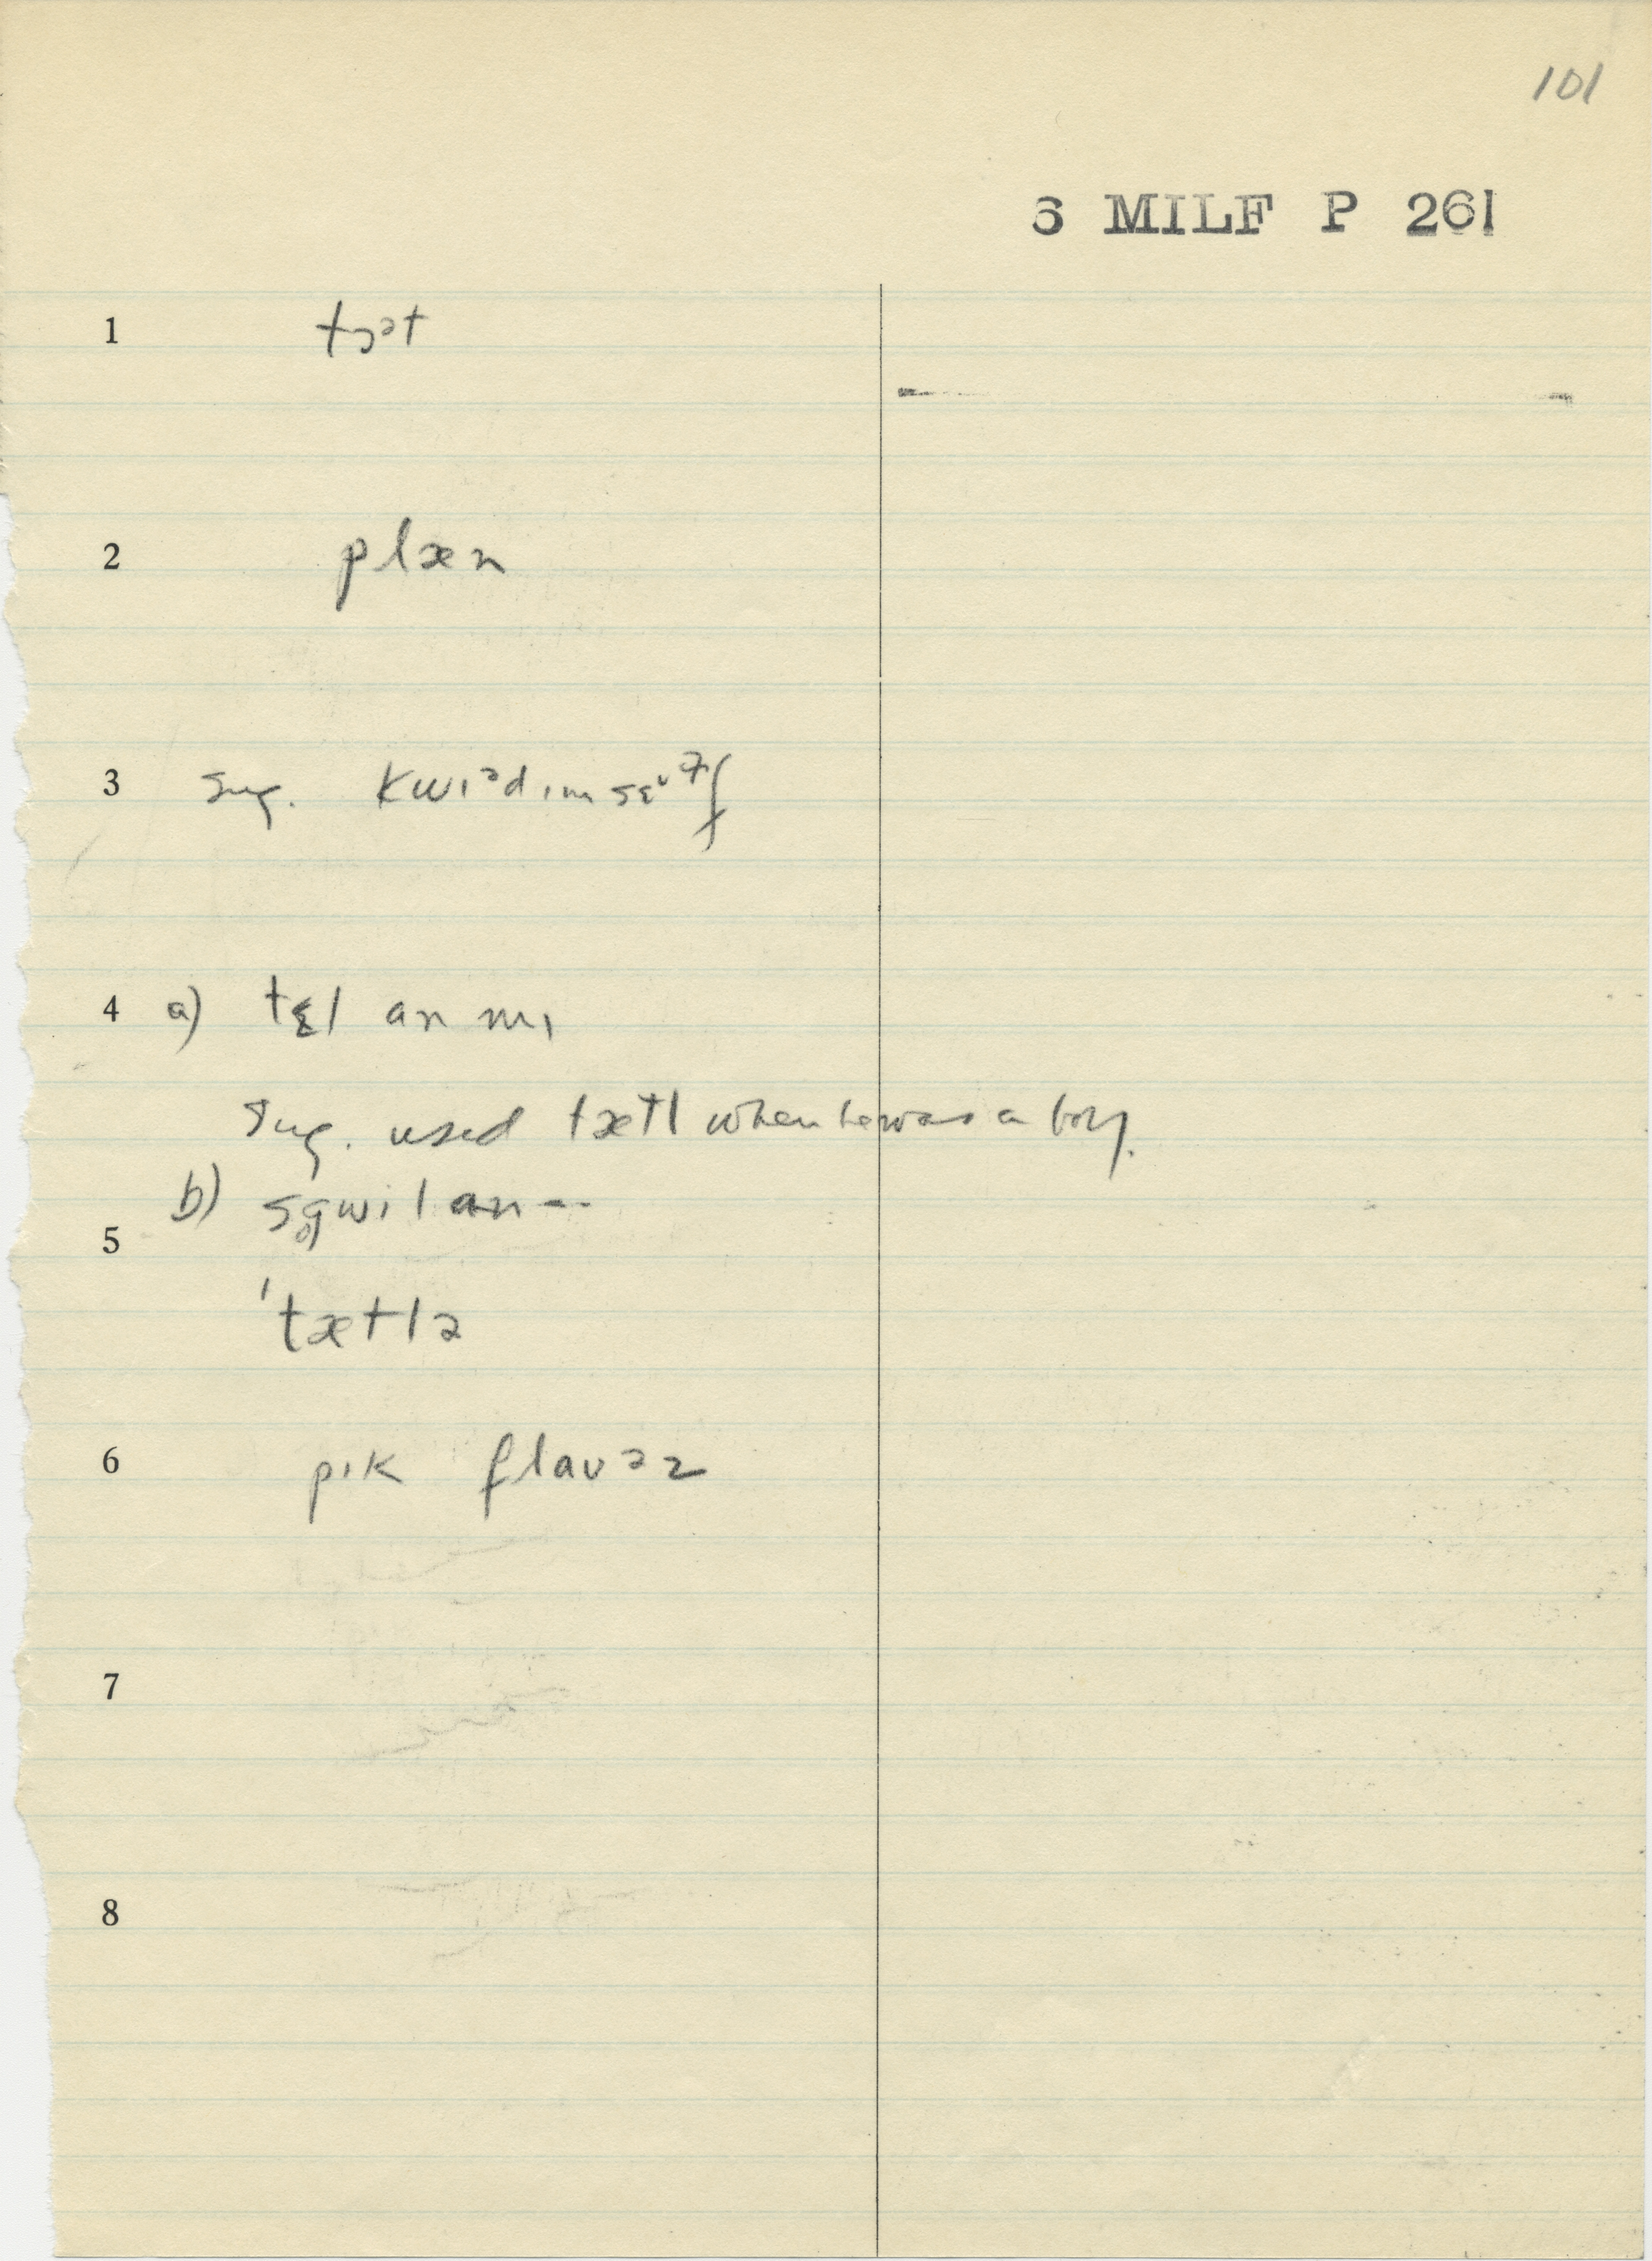 101
6 MILF P 261
1 tɔᵊt
2 plæn
3 sug. kwɪᵊdɪmsɛᵛ⁷f
4 a) tɛl an mɪ
sug. used tætl when he was a boy.
b) sgwil an --
5
'tætlə
6 pɪk flaʊəz
7
8